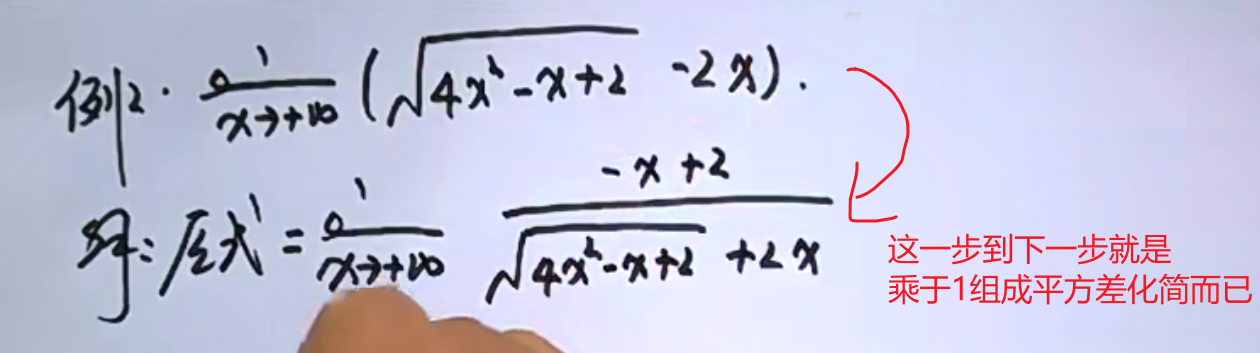 例2. lim x→+∞ (√4x²-x+2 -2x).
解: 原式 = lim x→+∞ -x+2 / √4x²-x+2 +2x
这一步到下一步就是
乘于1组成平方差化简而已